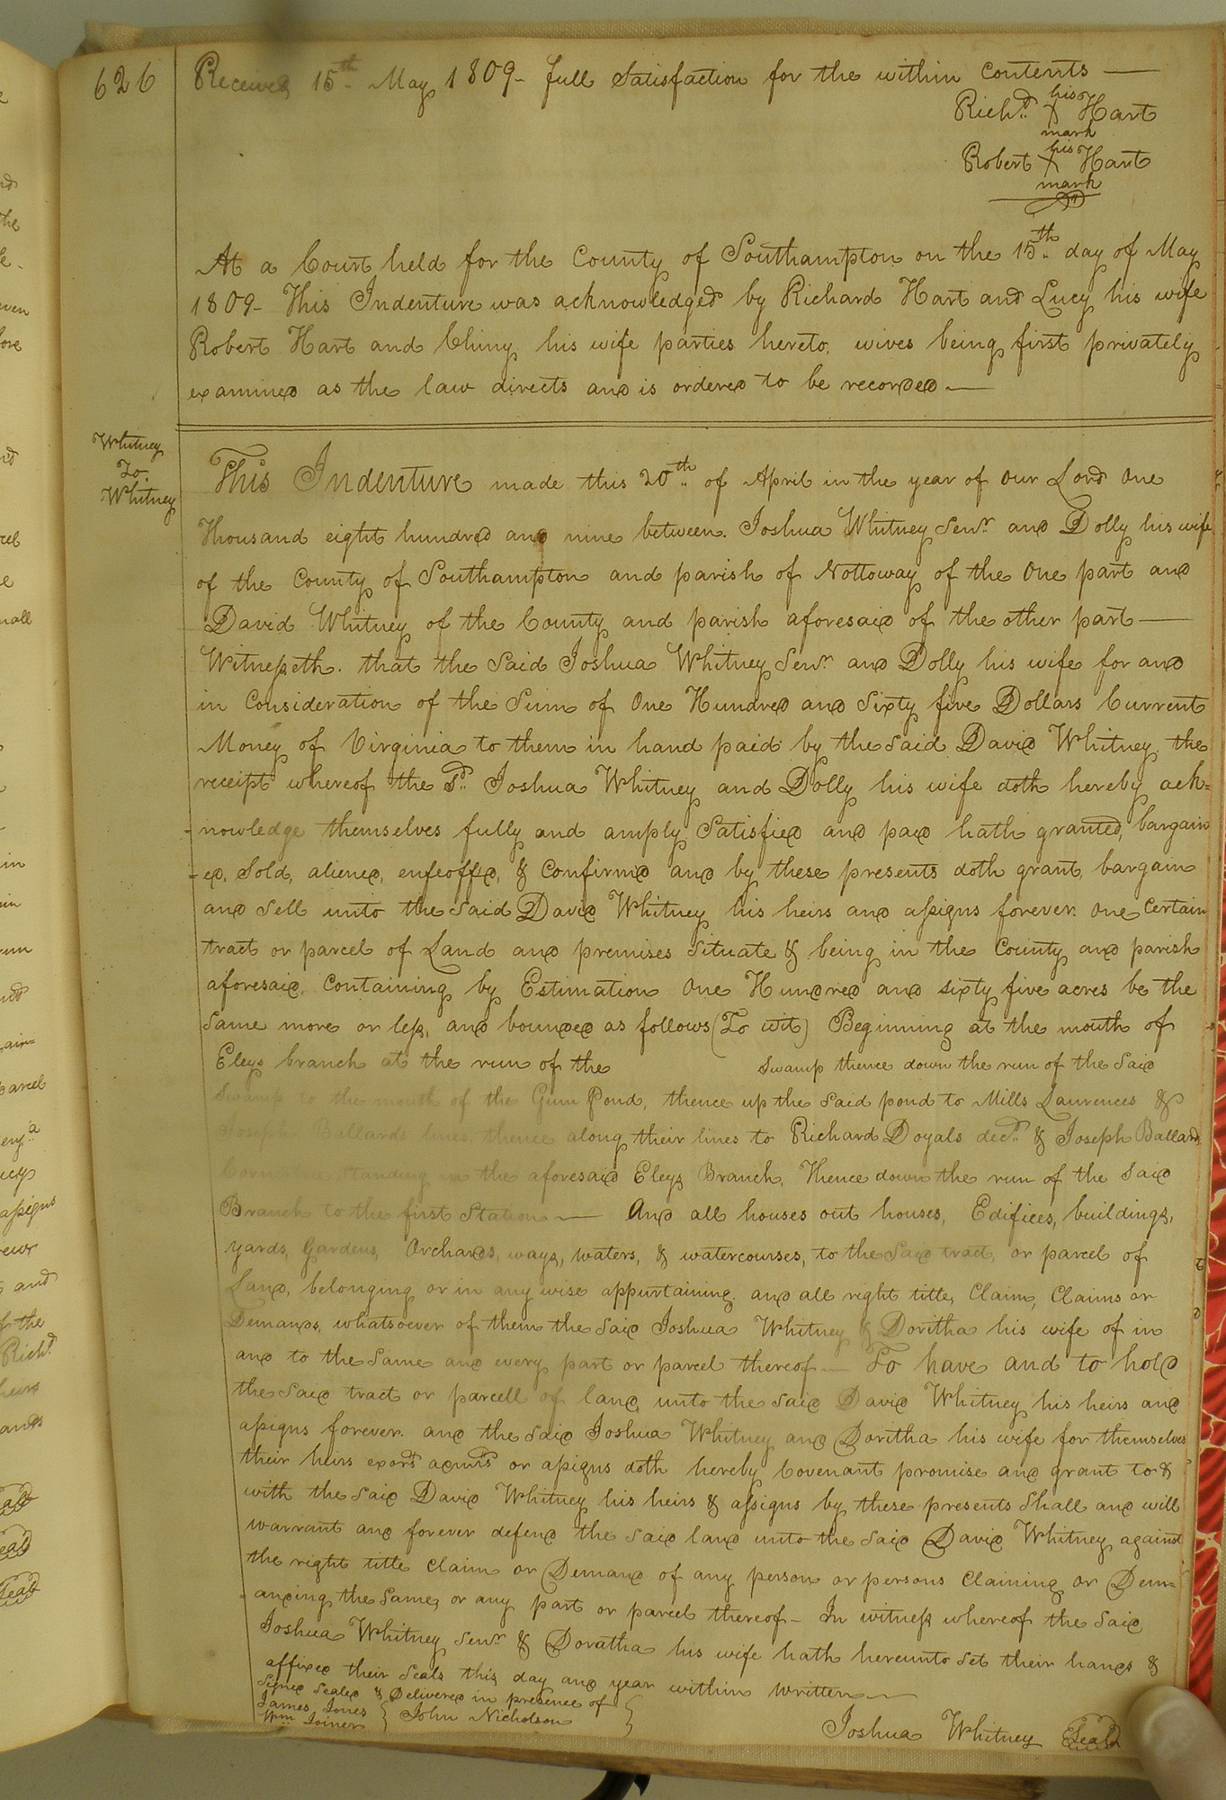 626
Received 15th May 1809 - full Satisfaction for the within contents —
his
Richd. X Hart
mark
his
Robert X Hart
mark
At a Court held for the County of Southampton on the 15th. day of May
1809 - This Indenture was acknowledged by Richard Hart and Lucy his wife
Robert Hart and Chiny his wife parties hereto, wives being first privately
examined as the law directs and is ordered to be recorded —
Whitney
To.
Whitney
This Indenture made this 20th. of April in the year of our Lord One
Thousand eight hundred and nine between. Joshua Whitney Senr. and Dolly his wife
of the County of Southampton and parish of Nottoway of the One part and
David Whitney of the County and parish aforesaid of the other part —
Witnesseth. that the Said Joshua Whitney Senr. and Dolly his wife for and
in Consideration of the Sum of One Hundred and Sixty five Dollars Current
Money of Virginia to them in hand paid by the Said David Whitney the
receipt whereof the Sd. Joshua Whitney and Dolly his wife doth hereby ack=
-nowledge themselves fully and amply Satisfied and paid hath granted, bargain
-ed, Sold, aliened, enfeoffed, & Confirmd and by these presents doth grant, bargain
and Sell unto the Said David Whitney his heirs and assigns forever. One Certain
tract or parcel of Land and premises Situate & being in the County and parish
aforesaid. Containing by Estimation One Hundred and sixty five acres be the
Same more or less, and bounded as follows (To wit) Beginning at the mouth of
Eleys branch at the run of the Swamp thence down the run of the Said
Swamp to the mouth of the Gum Pond, thence up the Said pond to Mills Laurences &
Joseph Ballards lines, thence along their lines to Richard Doyals decd. & Joseph Ballard
Standing in the aforesaid Eleys Branch, Thence down the run of the Said
Branch to the first Station — And all houses out houses, Edifices, buildings,
yards, Gardens, Orchards, ways, waters, & watercourses, to the Said tract, or parcel of
Land, belonging or in any wise appurtaining. and all right title, Claim, Claims or
Demands, whatsoever of them the Said Joshua Whitney & Doritha his wife of in
and to the Same and every part or parcel thereof — To have and to hold
the Said tract or parcell of land, unto the Said David Whitney his heirs and
assigns forever. and the Said Joshua Whitney and Doritha his wife for themselves
their heirs exors admrs or assigns doth hereby Covenant promise and grant to &
with the Said David Whitney his heirs & assigns by these presents Shall and will
warrant and forever defend the Said land unto the Said David Whitney against
the right title Claim or Demand of any person or persons Claiming or Dem=
anding the Same, or any part or parcel thereof - In witness whereof the Said
Joshua Whitney Senr. & Doratha his wife hath hereunto Set their hands &
affixed their Seals this day and year within written —
Signd Sealed & Delivered in presence of
James Jones
Wm. Joiner
John Nicholson
Joshua Whitney Seal